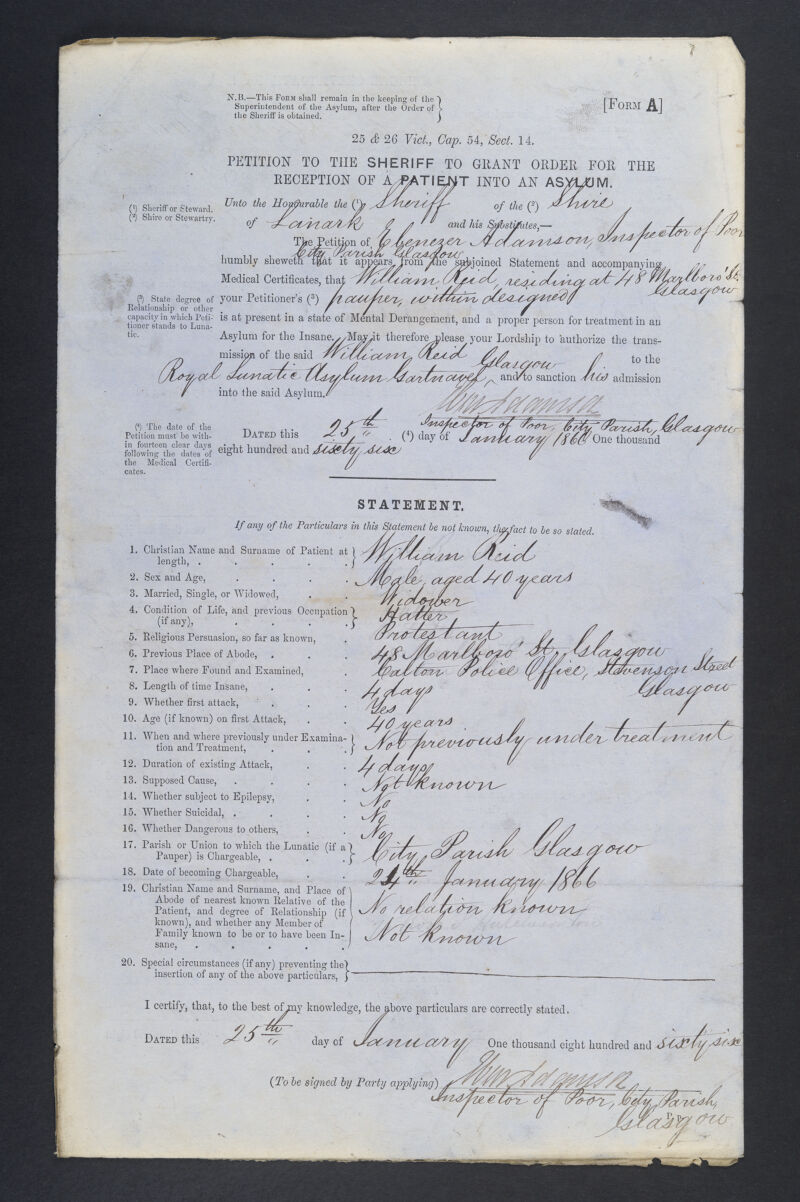 N.B.—This Form shall remain in the keeping of the
Superintendent of the Asylum, after the Order of
the Sheriff is obtained.
[Form A]
25 & 26 Vict., Cap. 54, Sect. 14.
PETITION TO THE SHERIFF TO GRANT ORDER FOR THE
RECEPTION OF A PATIENT INTO AN ASYLUM.
(¹) Sheriff or Steward.
(²) Shire or Stewartry.
Unto the Honourable the (¹) Sheriff of the (²) Shire
of Lanark and his Substitutes,—
The Petition of Ebenezer Adamson, Inspector of Poor
City Parish Glasgow
humbly sheweth that it appears from the subjoined Statement and accompanying
Medical Certificates, that William Reid, residing at 48 Marlboro' St.
Glasgow
(³) State degree of
Relationship or other
capacity in which Peti-
tioner stands to Luna-
tic.
your Petitioner's (³) pauper, within designed
is at present in a state of Mental Derangement, and a proper person for treatment in an
Asylum for the Insane. May it therefore please your Lordship to authorize the trans-
mission of the said William Reid to the
Royal Lunatic Asylum Gartnavel, Glasgow and to sanction his admission
into the said Asylum.
Eben Adamson
Inspector of Poor, City Parish, Glasgow
(⁴) The date of the
Petition must be with-
in fourteen clear days
following the dates of
the Medical Certifi-
cates.
Dated this 25th (⁴) day of January 1866 One thousand
eight hundred and sixty six
STATEMENT.
If any of the Particulars in this Statement be not known, the fact to be so stated.
1. Christian Name and Surname of Patient at
length, . . . . . William Reid
2. Sex and Age, . . . . Male, aged 40 years
3. Married, Single, or Widowed, . . Widower
4. Condition of Life, and previous Occupation
(if any), . . . . Hatter
5. Religious Persuasion, so far as known, . Protestant
6. Previous Place of Abode, . . . 48 Marlboro' St. Glasgow
7. Place where Found and Examined, . . Calton Police Office, Stevenson Street
Glasgow
8. Length of time Insane, . . . 4 days
9. Whether first attack, . . . Yes
10. Age (if known) on first Attack, . . 40 years
11. When and where previously under Examina-
tion and Treatment, . . . Not previously under treatment
12. Duration of existing Attack, . . 4 days
13. Supposed Cause, . . . . Not known
14. Whether subject to Epilepsy, . . No
15. Whether Suicidal, . . . . No
16. Whether Dangerous to others, . . No
17. Parish or Union to which the Lunatic (if a
Pauper) is Chargeable, . . . City Parish Glasgow
18. Date of becoming Chargeable, . . 24th January 1866
19. Christian Name and Surname, and Place of
Abode of nearest known Relative of the
Patient, and degree of Relationship (if
known), and whether any Member of
Family known to be or to have been In-
sane, . . . . . .
No relation known
Not known
20. Special circumstances (if any) preventing the
insertion of any of the above particulars,
I certify, that, to the best of my knowledge, the above particulars are correctly stated.
Dated this 25th day of January One thousand eight hundred and sixty six
(To be signed by Party applying) Eben Adamson
Inspector of Poor, City Parish,
Glasgow